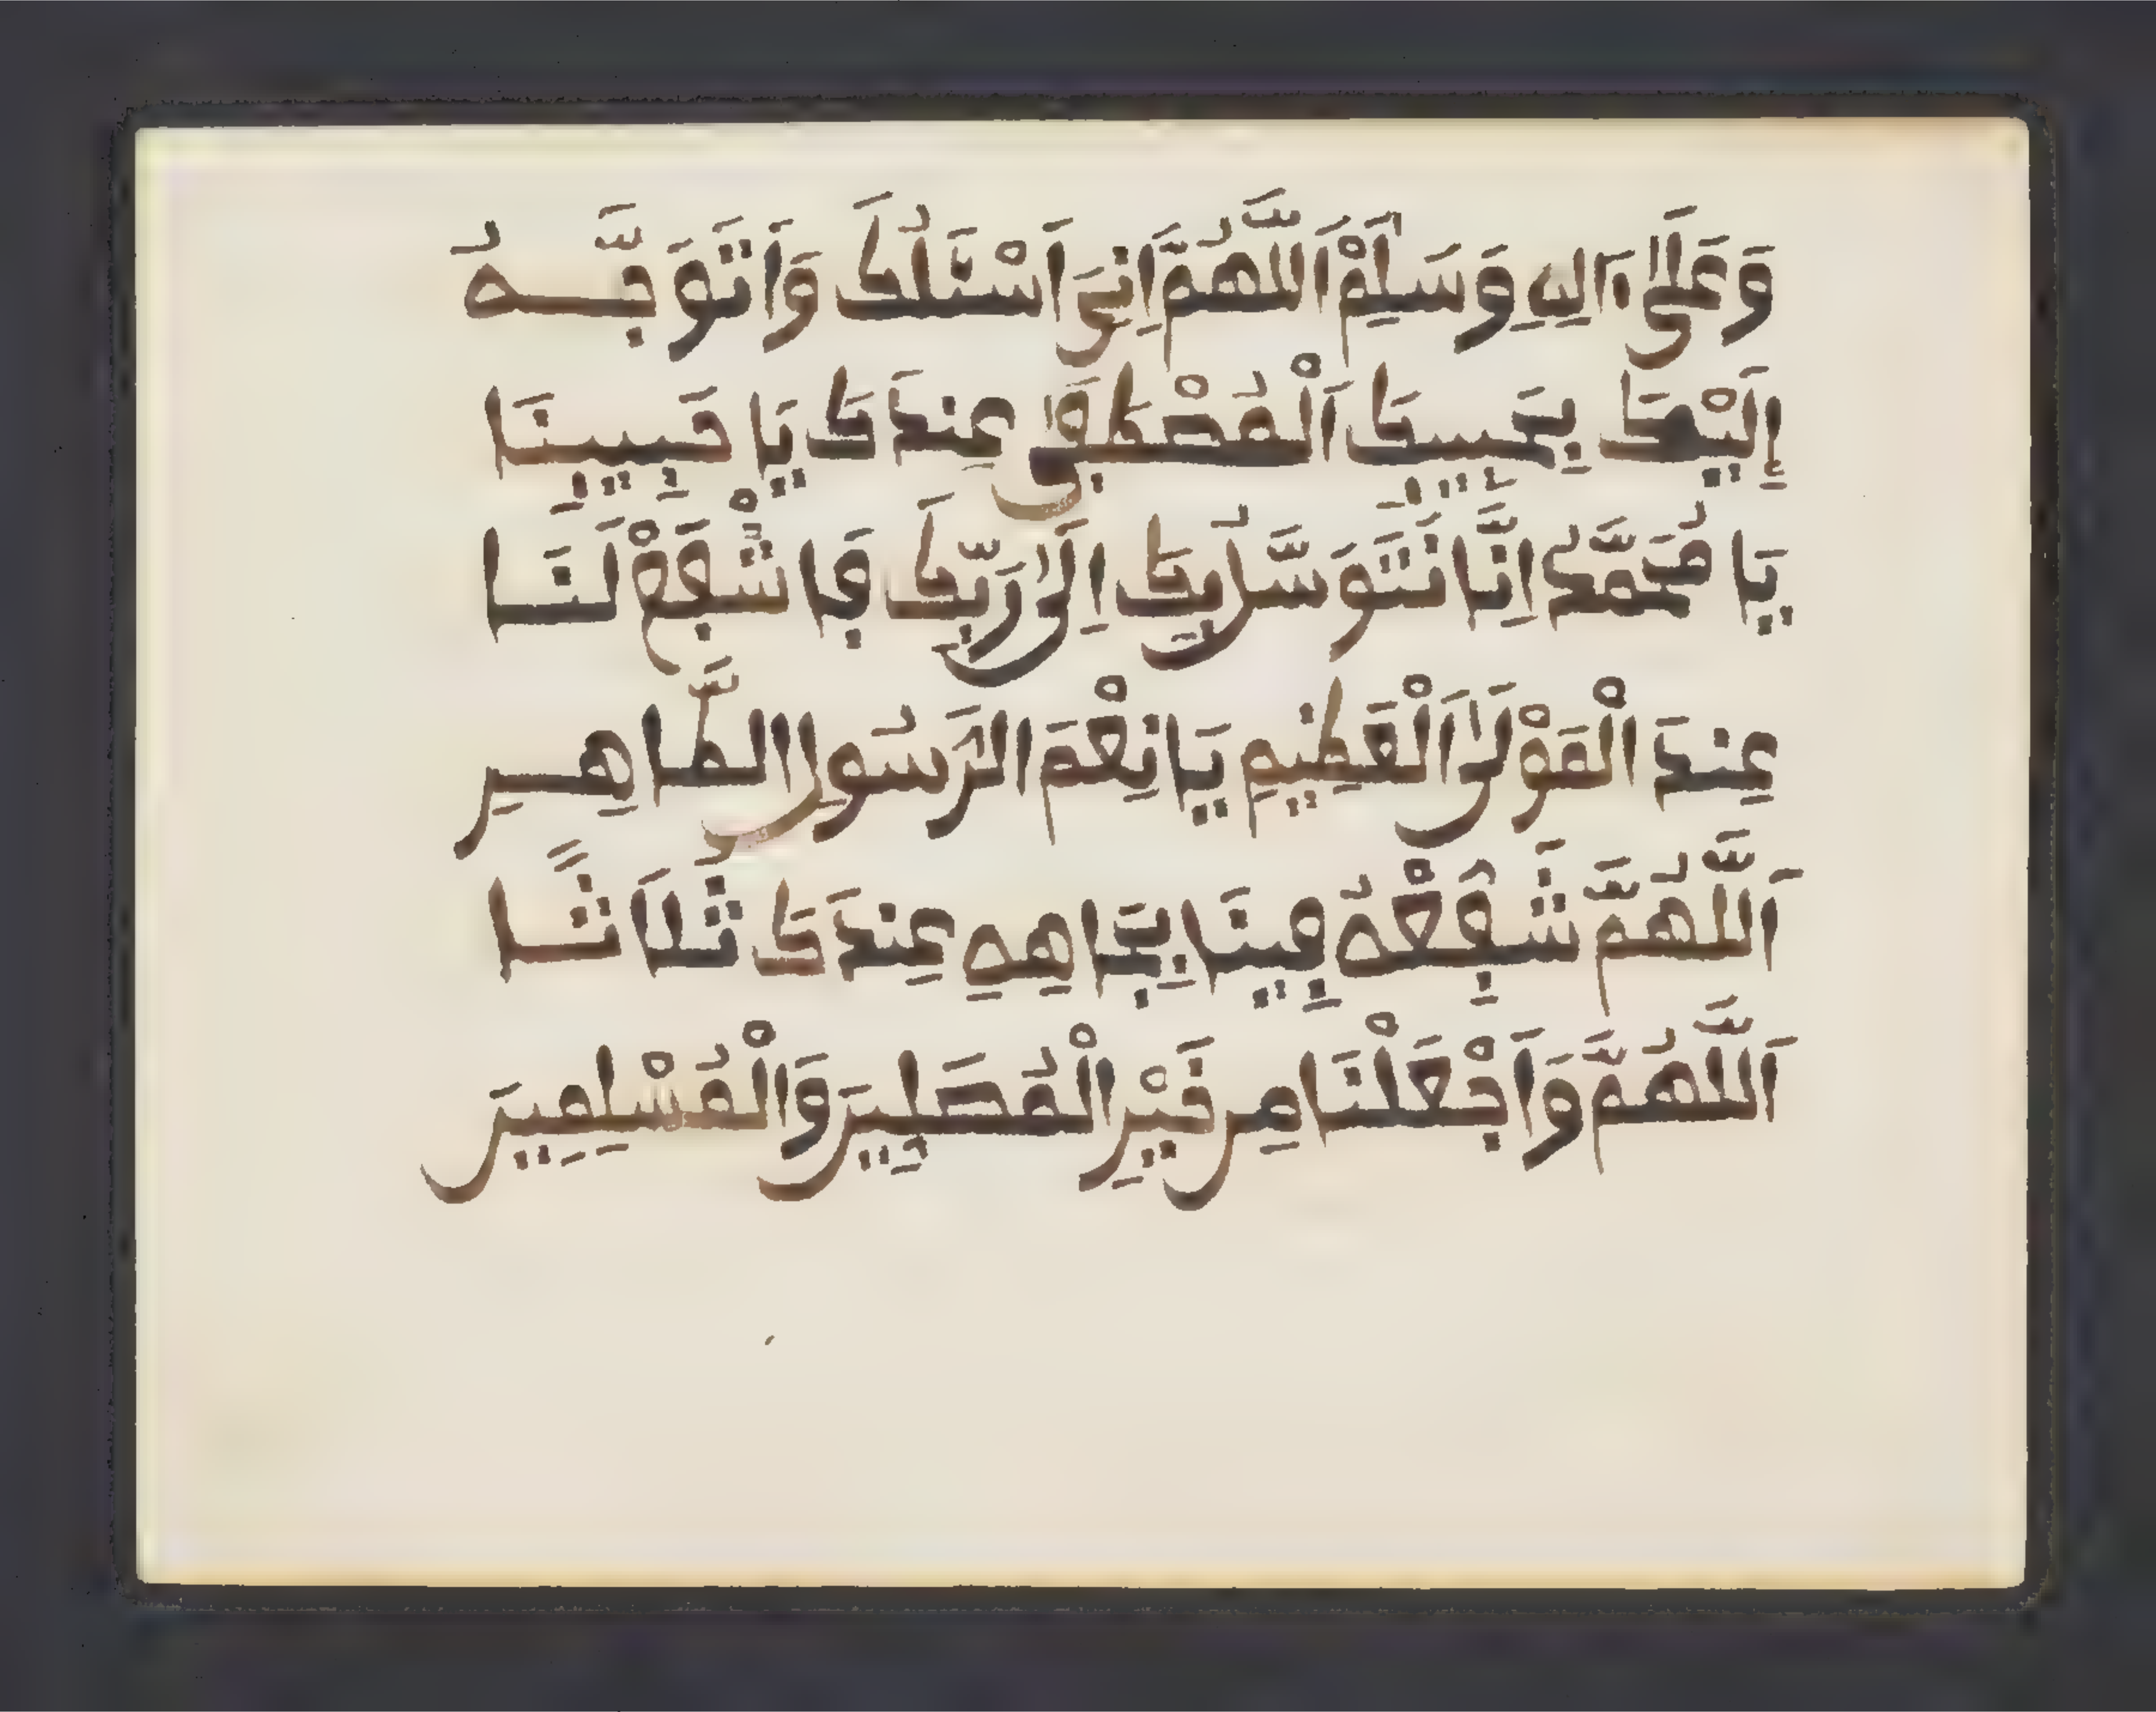 وَعَلَىٰ ءَالِهِ وَسَلِّمْ اَللَّهُمَّ اِنِّىَ اَسْئَلُكَ وَاَتَوَجَّهُ
إِلَيْكَ بِحَبِيبِكَ اَلْمُصْطَفَىٰ عِندَكَ يَا حَبِيبَنَا
يَا مُحَمَّدُ اِنَّا نَتَوَسَّلُ بِكَ اِلَىٰ رَبِّكَ فَاشْفَعْ لَنَا
عِندَ الْمَوْلَىٰ اَلْعَظِيمِ يَا نِعْمَ الرَسُولُ الطَّاهِرِ
اَللَّهُمَّ شَفِّعْهُ فِينَا بِجَاهِهِ عِندَكَ ثَلَاثًا
اَللَّهُمَّ وَاَجْعَلْنَا مِن خَيْرِ الْمُصَلِينَ وَالْمُسْلِمِينَ